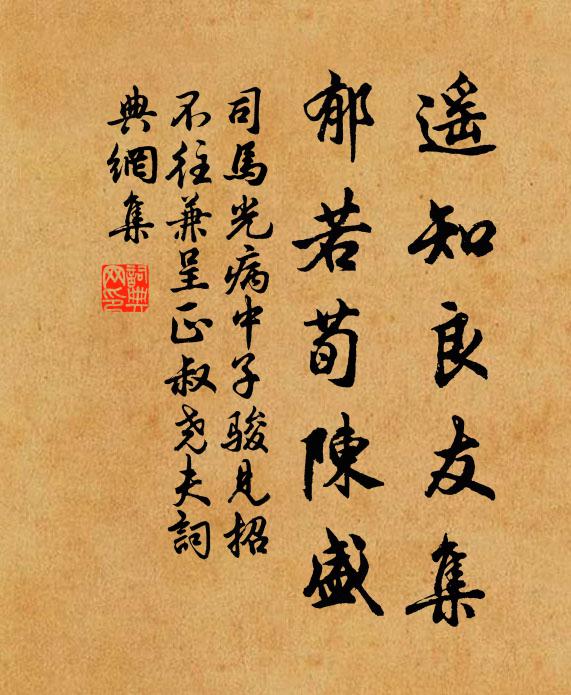 遥知良友集
郁若荀陳盛
司馬光病中子駿見招
不往兼呈正叔堯夫詞
典網集
詞典網印